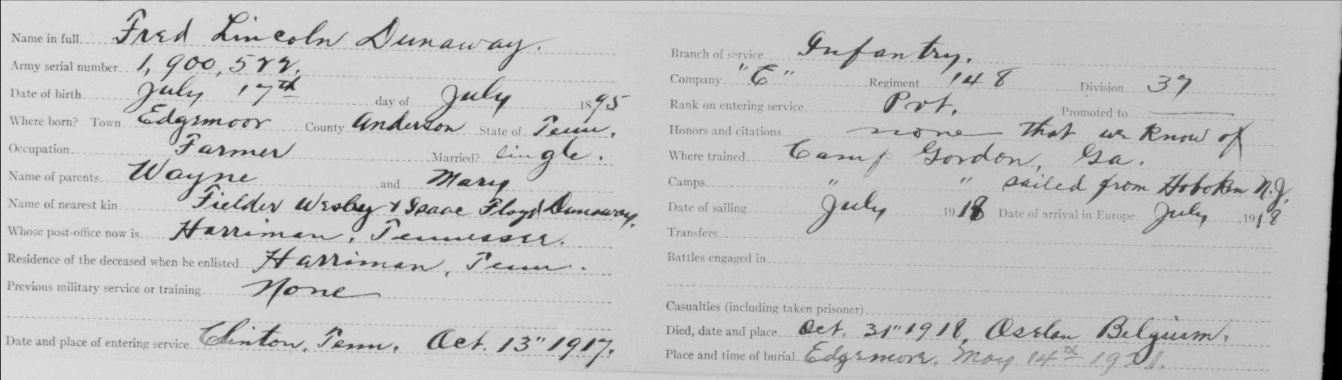 Name in full Fred Lincoln Dunaway.
Army serial number 1,900,522.
Date of birth July 17th day of July 1895
Where born? Town Edgemoor County Anderson State of Tenn.
Occupation Farmer Married? single.
Name of parents Wayne and Mary
Name of nearest kin Fielder Wesley & Isaac Floyd Dunaway.
Whose post-office now is Harriman, Tennessee.
Residence of the deceased when he enlisted Harriman, Tenn.
Previous military service or training None
Date and place of entering service Clinton, Tenn. Oct. 13" 1917.
Branch of service Infantry.
Company "C" Regiment 148 Division 37
Rank on entering service Pvt. Promoted to
Honors and citations none that we know of
Where trained Camp Gordon, Ga.
Camps " " sailed from Hoboken N.J.
Date of sailing July 1918 Date of arrival in Europe July 1918
Transfers
Battles engaged in
Casualties (including taken prisoner)
Died, date and place Oct. 31" 1918, Belgium.
Place and time of burial Edgemoor, May 14th